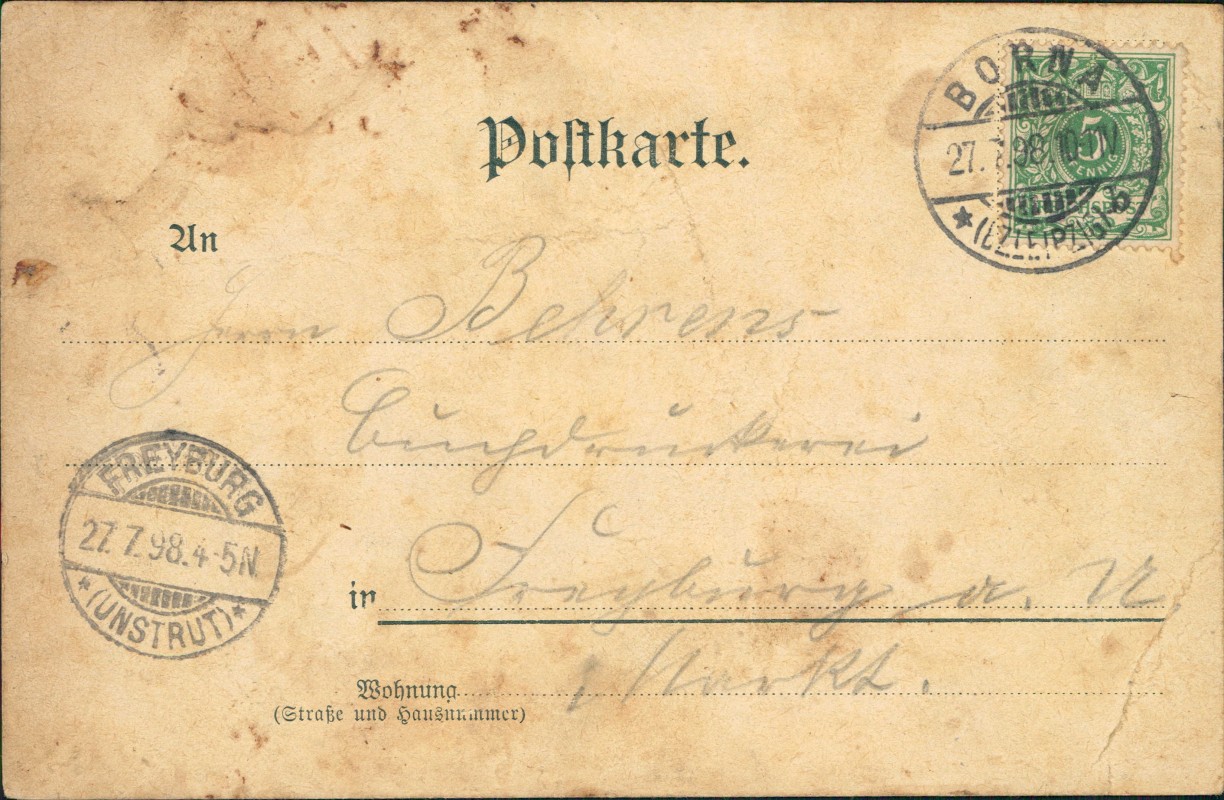 Postkarte.
BORNA
27. 7. 98. 10-11V
* (BZ. LEIPZIG) b
5
PFENNIG
An
Herrn Behrens
Buchdruckerei
in Freyburg a. U
Markt.
Wohnung
(Straße und Hausnummer)
FREYBURG
27. 7. 98. 4-5N
* (UNSTRUT) *